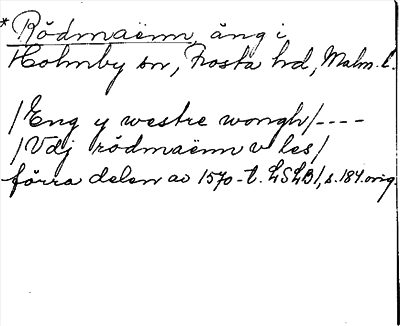 *Rödmaënn, äng i
Holmby sn, Frosta hd, Malm. l.
/Eng y westre wongh/----
/Vdj rödmaënn v les/
förra delen av 1570-t. LSLB1, s. 184. orig.